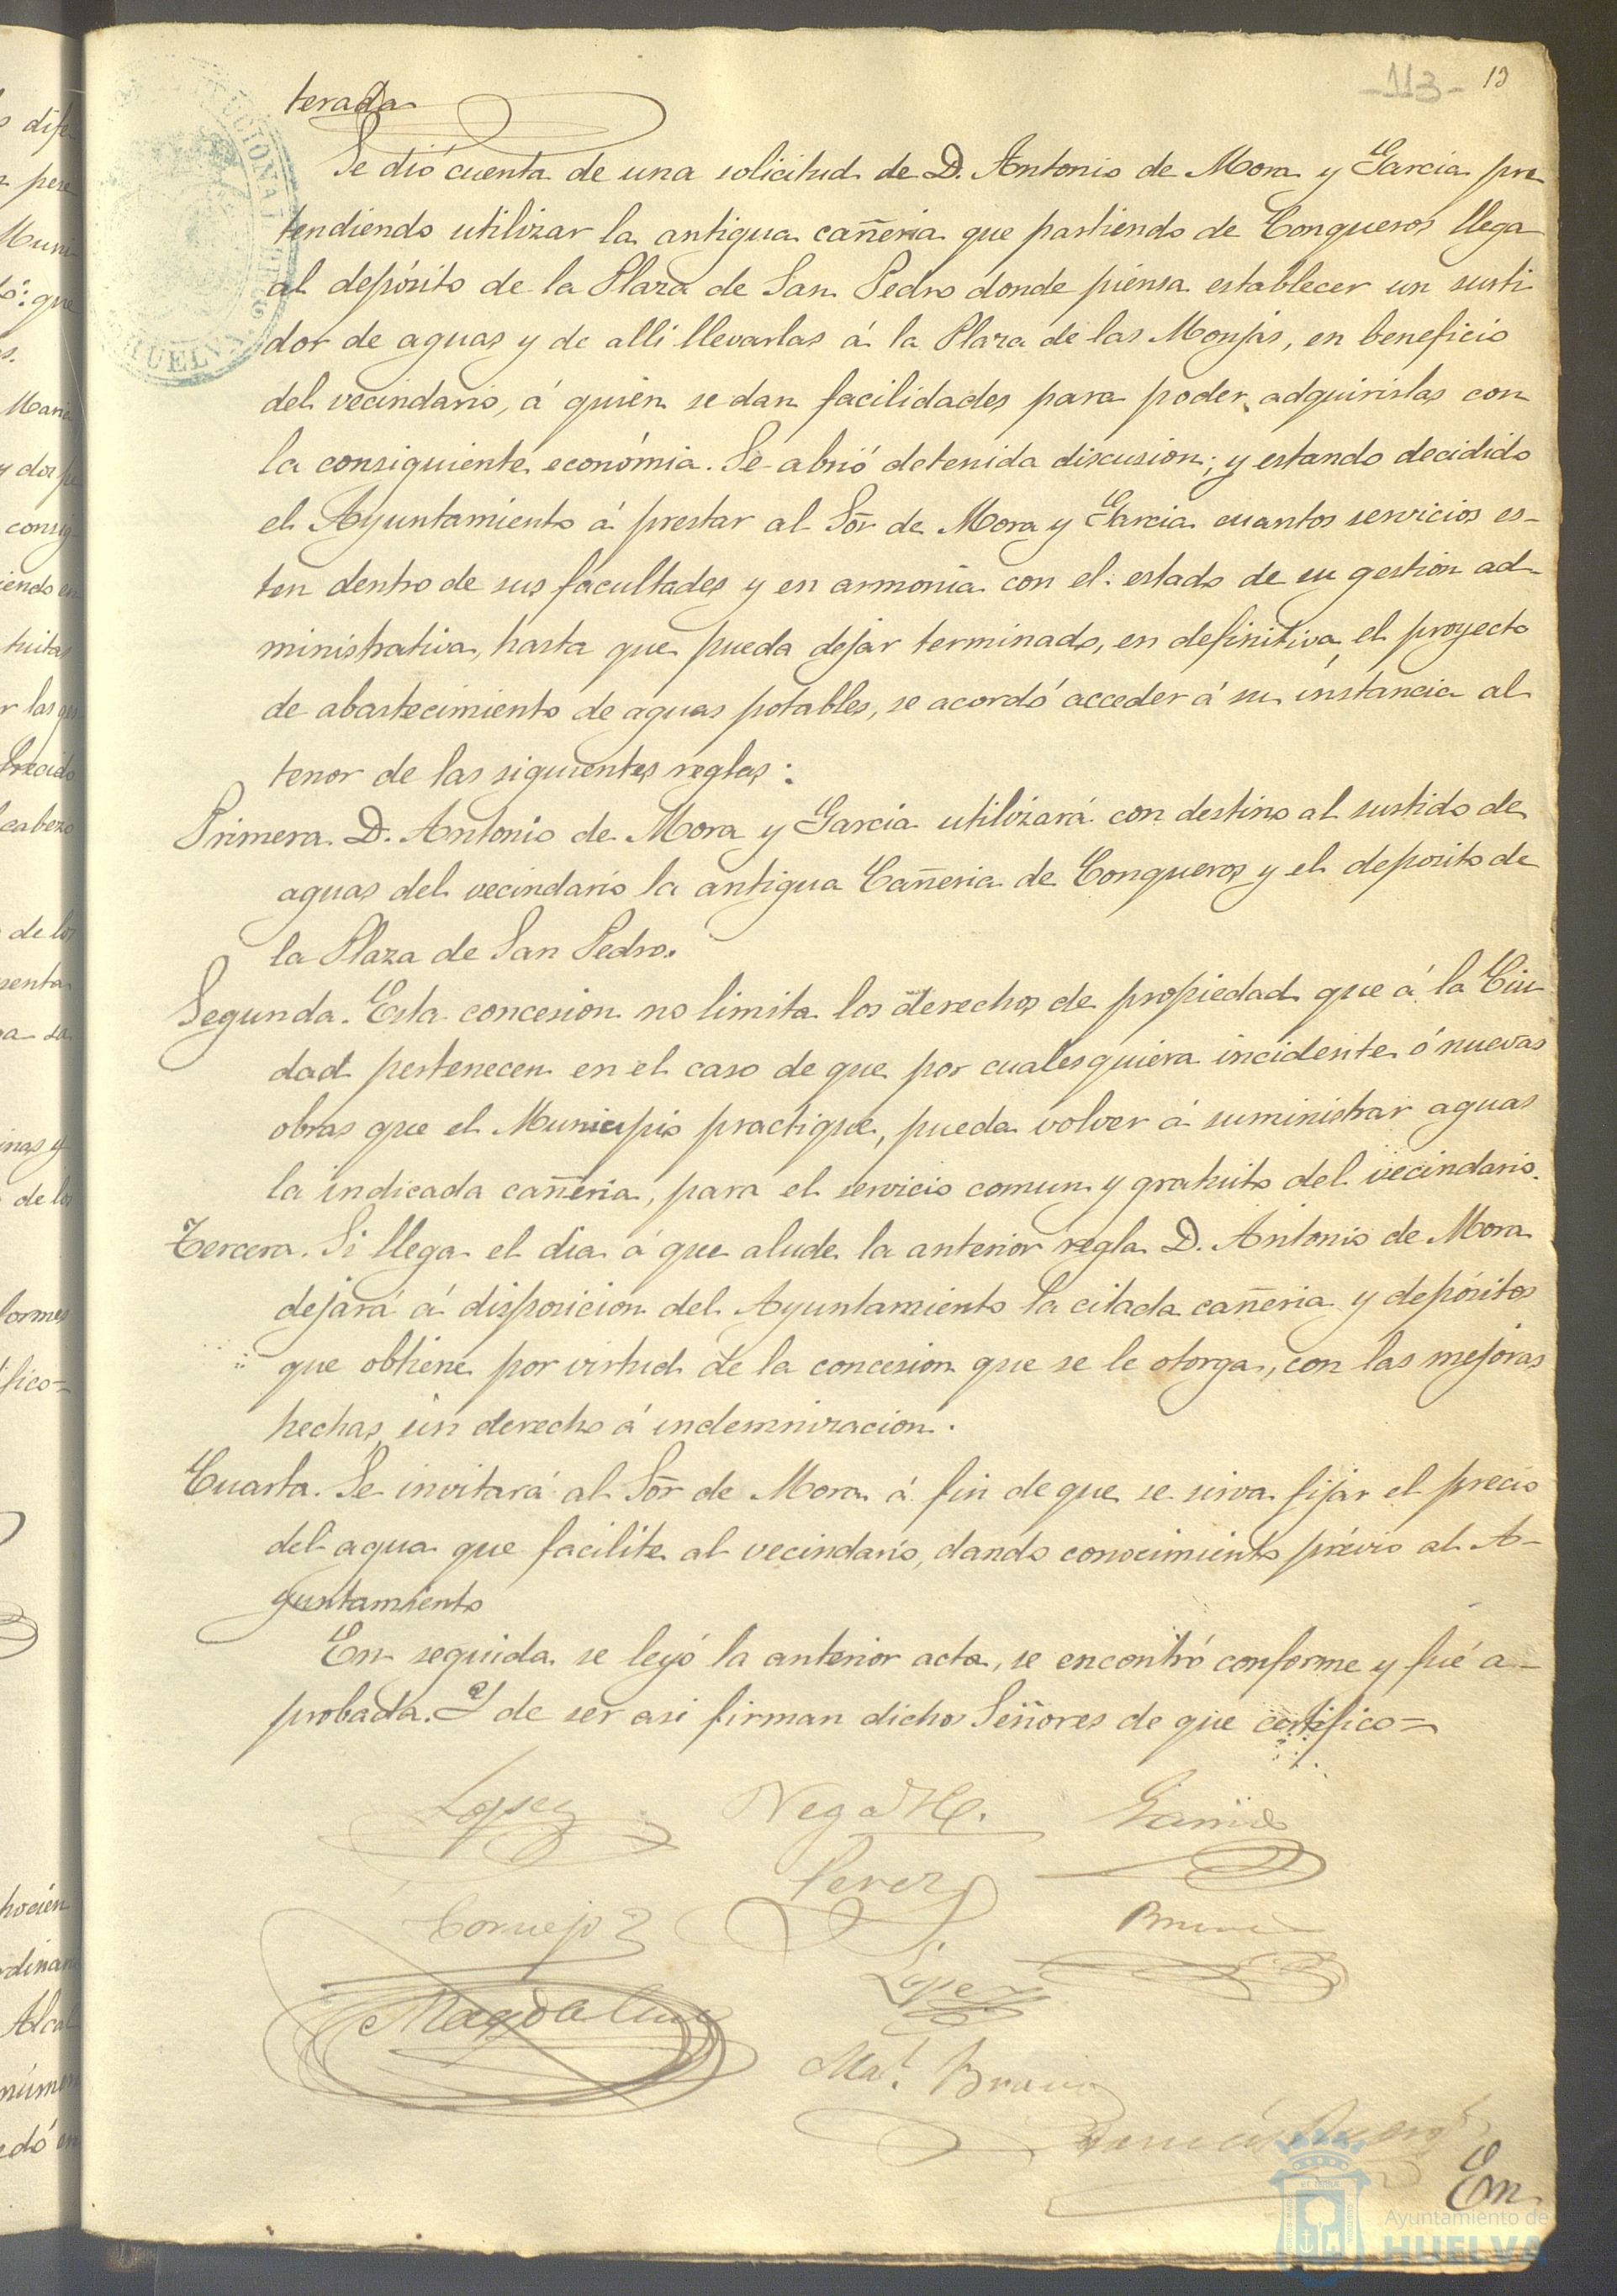 -113- 13
terada
Se dió cuenta de una solicitud de D. Antonio de Mora y Garcia pre
tendiendo utilizar la antigua cañeria que partiendo de Conqueros llega
al depósito de la Plaza de San Pedro donde piensa establecer un surti
dor de aguas y de alli llevarlas á la Plaza de las Monjas, en beneficio
del vecindario, á quien se dan facilidades para poder adquirirlas con
la consiguiente económia. Se abrió detenida discusion; y estando decidido
el Ayuntamiento á prestar al Sõr de Mora y Garcia cuantos servicios es-
ten dentro de sus facultades y en armonia con el estado de su gestion ad-
ministrativa, hasta que pueda dejar terminado, en definitiva, el proyecto
de abastecimiento de aguas potables, se acordó acceder á su instancia al
tenor de las siguientes reglas:
Primera. D. Antonio de Mora y Garcia utilizará con destino al surtido de
aguas del vecindario la antigua Cañeria de Conqueros y el deposito de
la Plaza de San Pedro.
Segunda. Esta concesion no limita los derechos de propiedad que á la Ciu
dad pertenecen en el caso de que por cualesquiera incidente ó nuevas
obras que el Municipio practique, pueda volver á suministrar aguas
la indicada cañeria, para el servicio comun y gratuito del vecindario.
Tercera. Si llega el dia á que alude la anterior regla D. Antonio de Mora
dejará á disposicion del Ayuntamiento la citada cañeria y depósitos
que obtiene por virtud de la concesion que se le otorga, con las mejoras
hechas, sin derecho á indemnizacion.
Cuarta. Se invitará al Sõr de Mora á fin de que se sirva fijar el precio
del agua que facilite al vecindario, dando conocimiento prévio al A-
yuntamiento
En seguida se leyó la anterior acta, se encontró conforme y fué a-
probada. Y de ser asi firman dichos Señores de que certifico=
Lopez
Perez
Cornejo
Lopez
Magdalena
Bravo
En
HUELVA
Ayuntamiento de
HUELVA